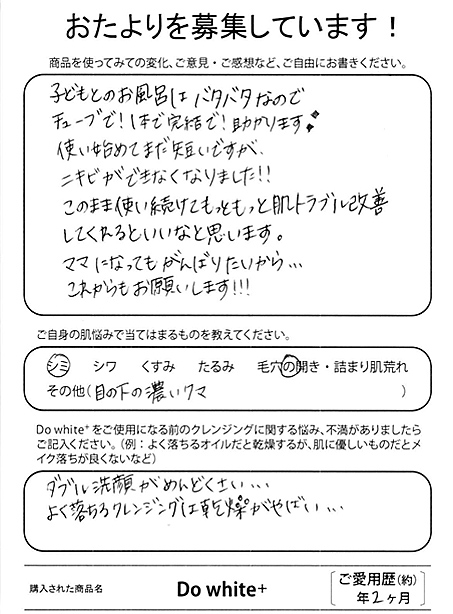 おたよりを募集しています！
商品を使ってみての変化、ご意見・ご感想など、ご自由にお書きください。
子どもとのお風呂はバタバタなので
チューブで！1本で完結で！助かります
使い始めてまだ短いですが、
ニキビができなくなりました!!
このまま使い続けてもっともっと肌トラブル改善
してくれるといいなと思います。
ママになってもがんばりたいから…
これからもお願いします!!!
ご自身の肌悩みで当てはまるものを教えてください。
シミ シワ くすみ たるみ 毛穴の開き・詰まり肌荒れ
その他(目の下の濃いクマ )
Do white⁺をご使用になる前のクレンジングに関する悩み、不満がありましたら
ご記入ください。(例：よく落ちるオイルだと乾燥するが、肌に優しいものだとメ
イク落ちが良くないなど)
ダブル洗顔がめんどくさい…
よく落ちるクレンジングは乾燥がやばい…
購入された商品名 Do white⁺ ご愛用歴(約)
年2ヶ月